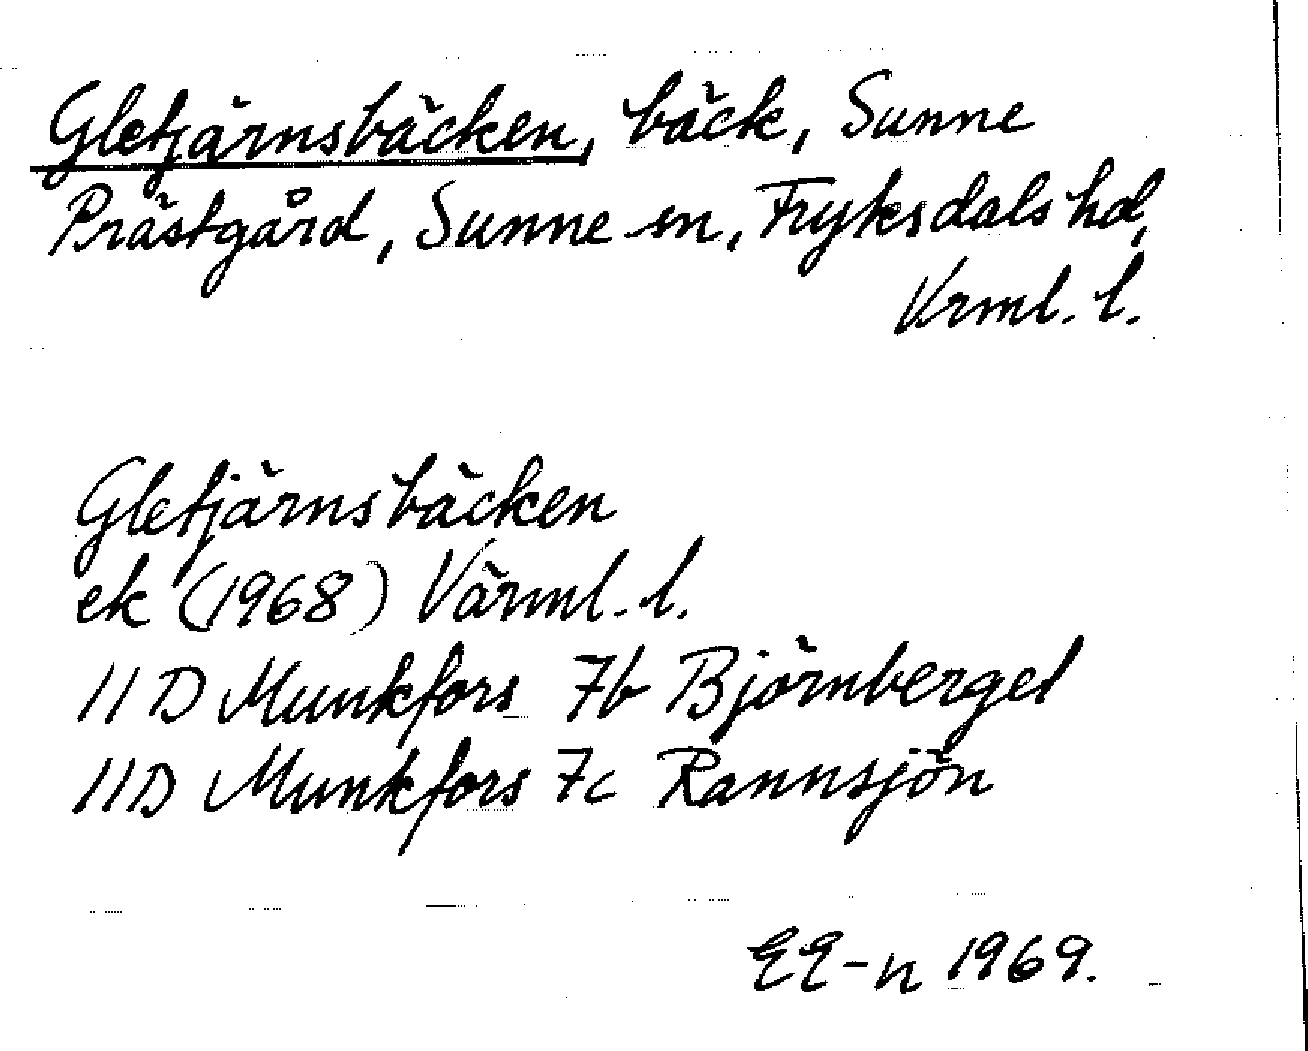 Gletjärnsbäcken, bäck, Sunne
Prästgård, Sunne sn, Fryksdals hd,
Vrml. l.
Gletjärnsbäcken
ek (1968) Värml. l.
11D Munkfors 7b Björnberget
11D Munkfors 7c Rannsjön
EE-n 1969.